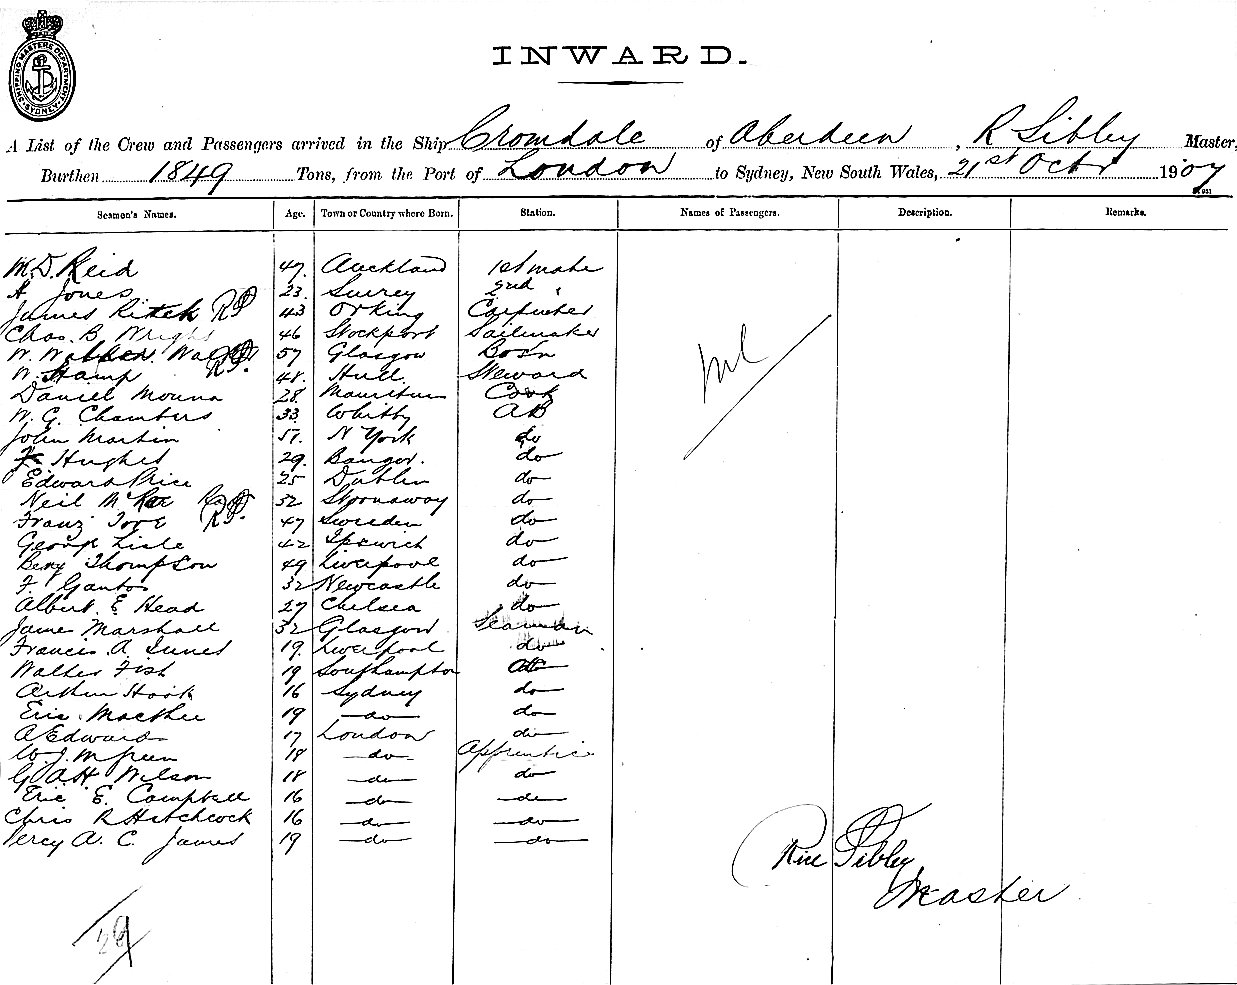 SHIPPING MASTERS DEPARTMENT SYDNEY
INWARD.
A List of the Crew and Passengers arrived in the Ship Cromdale of Aberdeen, R Sibley Master,
Burthen 1849 Tons, from the Port of London to Sydney, New South Wales, 21st Octr 1907
Seamen's Names. Age. Town or Country where Born. Station. Names of Passengers. Description. Remarks.
M. D. Reid 47. Auckland 1st mate
A Jones 23. Surrey 2nd "
James Ritch RP 43 Orkney Carpenter
Chas. B Wright 46 Stockport Sailmaker
W. 57 Glasgow Bosn
W. Stamp RP. 48. Hull. Steward
Daniel Mouna 28. Mauritius Cook
W. G. Chambers 33. Whitby AB
John Martin 51. N York do
Hughes 29. Bangor. do
Edward Price 25 Dublin do
Neil McRae 32 Stornaway do
Franz RP. 47 Sweden do
George Lisle 42 Ipswich do
Benj Thompson 49 Liverpool do
F. Ganton 32 Newcastle do
Albert E Head 27 Chelsea do
James Marshall 32 Glasgow Seaman
Francis A 19. Liverpool do
Walter Fish 19 Southampton do
Arthur Hook 16 Sydney do
Eric MacPhee 19 do do
A Edwards 17 London do
W. J. 18 do Apprentice
G A H Wilson 18 do do
Eric E. Campbell 16 do do
Chris R Hitchcock 16 do do
Percy A. C. James 19 do do
Nil
Sibley
Master
28